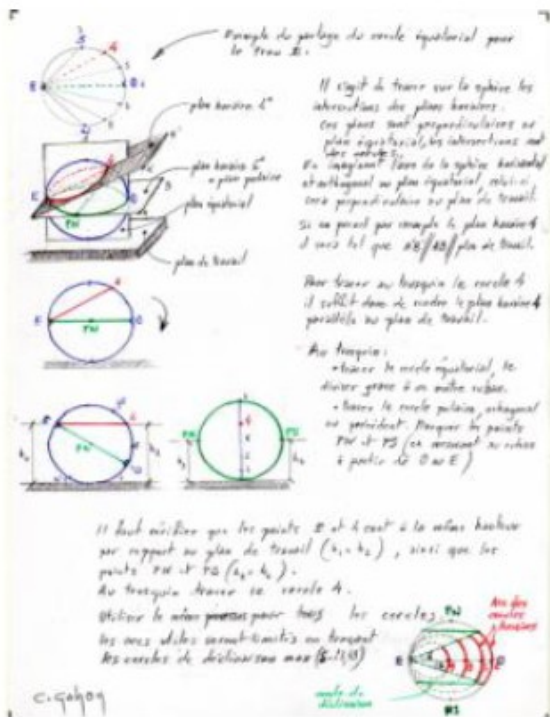 Exemple du partage du cercle équatorial pour
le trou E.
Il s'agit de tracer sur la sphère les
intersections des plans horaires.
Ces plans sont perpendiculaires au
plan équatorial, les intersections sont
des cercles.
En imaginant l'axe de la sphère horizontal
et orthogonal au plan équatorial, celui-ci
sera perpendiculaire au plan de travail.
Si on prend par exemple le plan horaire 4
il sera tel que plan de travail.
plan horaire 4
plan horaire 6
= plan polaire
plan équatorial
plan de travail
Pour tracer au trusquin le cercle 4
il suffit donc de rendre le plan horaire 4
parallèle au plan de travail.
Au trusquin:
• tracer le cercle équatorial, le
diviser grâce à un mètre ruban.
• tracer le cercle polaire, orthogonal
au précédent. Marquer les points
PN et PS (en mesurant au ruban
à partir de O ou E)
Il faut vérifier que les points E et 4 sont à la même hauteur
par rapport au plan de travail (h₁ = h₂), ainsi que les
points PN et PS
Au trusquin tracer le cercle 4.
Utiliser le même processus pour tous les cercles,
les arcs utiles seront limités en traçant
les cercles de déclinaison max
Arc des
cercles
horaires
cercle de
déclinaison
C. Gahon